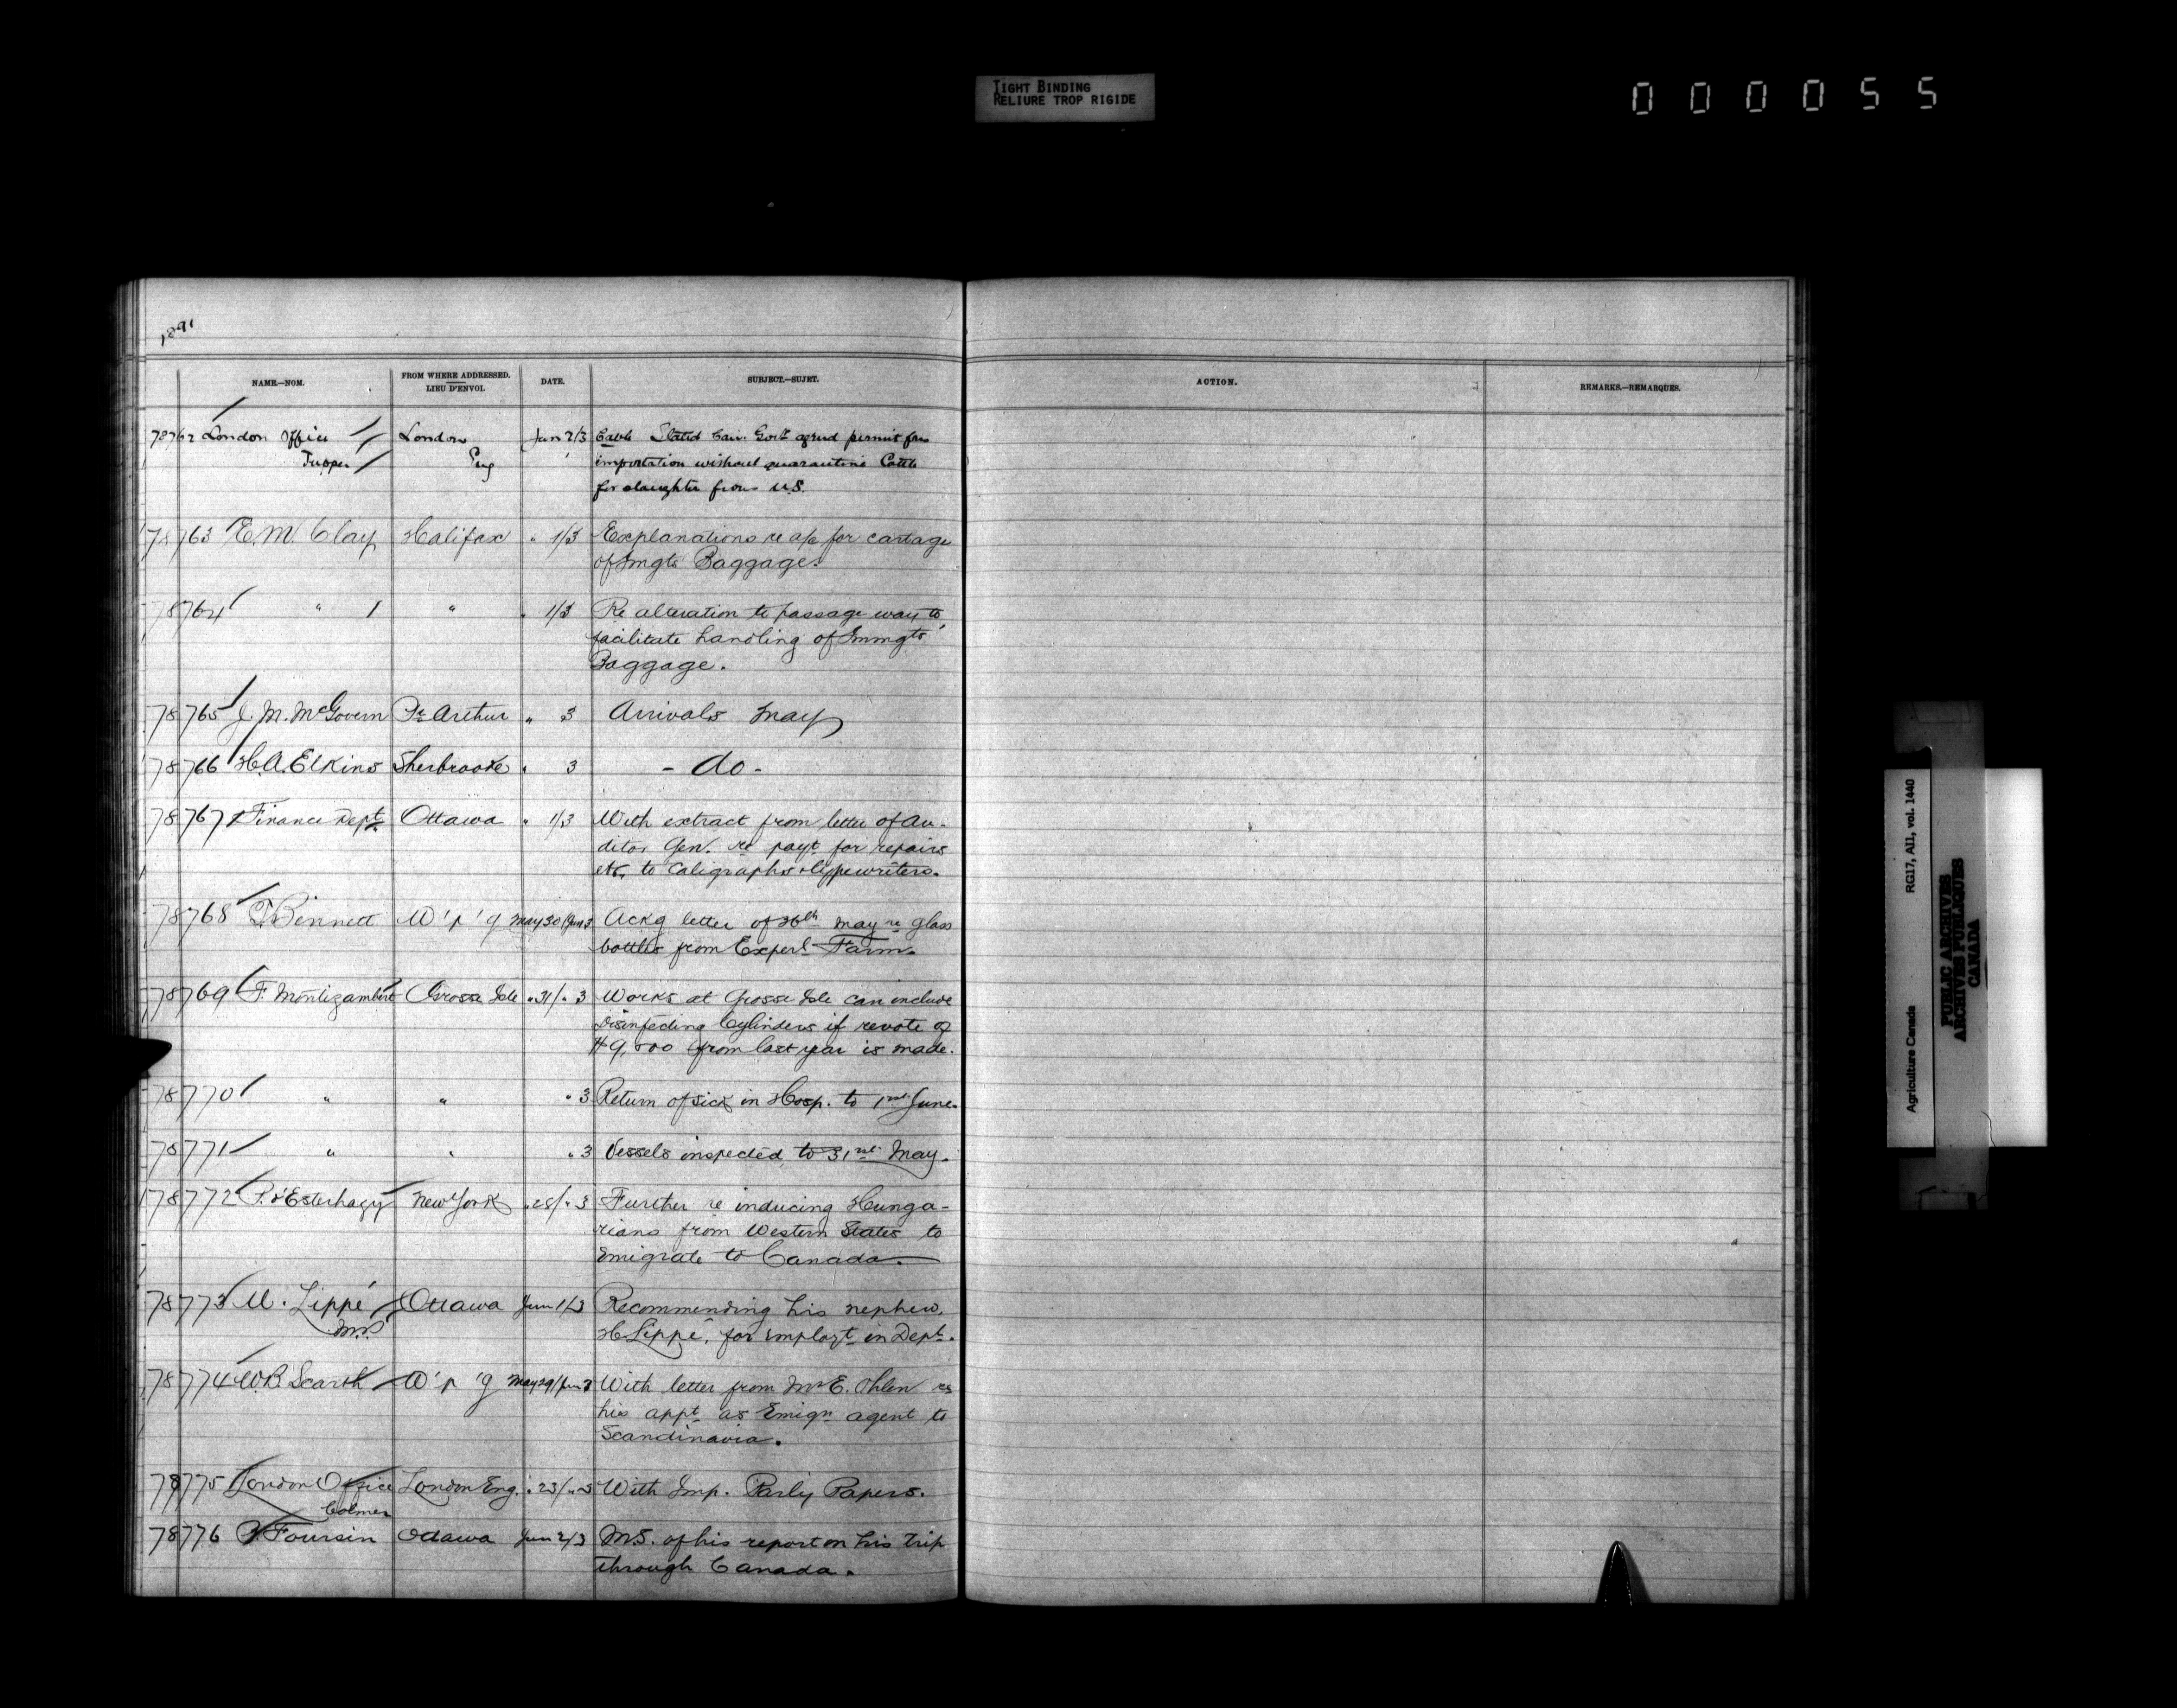 TIGHT BINDING
RELIURE TROP RIGIDE
000055
1891
NAME.—NOM. FROM WHERE ADDRESSED. LIEU D'ENVOI. DATE. SUBJECT.—SUJET. ACTION. REMARKS.—REMARQUES.
78762 London Office London Jun 2/3 Cable Stated Can. Govt agreed permit for
Tupper Eng importation without quarantine Cattle
for slaughter from U.S.
78763 E.M. Clay Halifax " 1/3 Explanations re a/c for cartage
of Imgts Baggage.
78764 " " " 1/3 Re alteration to passage way to
facilitate handling of Immgts'
Baggage.
78765 J. M. McGovern Pt. Arthur " 3 Arrivals May
78766 H.A. Elkins Sherbrooke " 3 - do -
78767 Finance Dept Ottawa " 1/3 With extract from letter of Au-
ditor Gen. re payt for repairs
etc, to Caligraphs & typewriters.
78768 T. Bennett W'p'g May 30/Jun 3 Ackg letter of 26th May re glass
bottles from Experl Farm.
78769 F. Montizambert Grosse Isle " 31/" 3 Works at Grosse Isle can include
Disinfecting Cylinders if revote of
$9,000 from last year is made.
78770 " " " 3 Return of sick in Hosp. to 1st June.
78771 " " " 3 Vessels inspected to 31st May.
78772 P. d'Esterhazy New York " 28/" 3 Further re inducing Hunga-
rians from Western States to
Emigrate to Canada.
78773 U. Lippé Ottawa Jun 1/3 Recommending his nephew,
M.P. H Lippé, for employt in Dept.
78774 W.B. Scarth W'p'g May 29/Jun 3 With letter from Mr E. Ohlen re
his appt as Emign agent to
Scandinavia.
78775 London Office London Eng. " 23/" 3 With Imp. Parly Papers.
Colmer
78776 Foursin Ottawa Jun 2/3 M.S. of his report on his trip
through Canada.
Agriculture Canada RG17, AI1, vol. 1440
PUBLIC ARCHIVES
ARCHIVES PUBLIQUES
CANADA